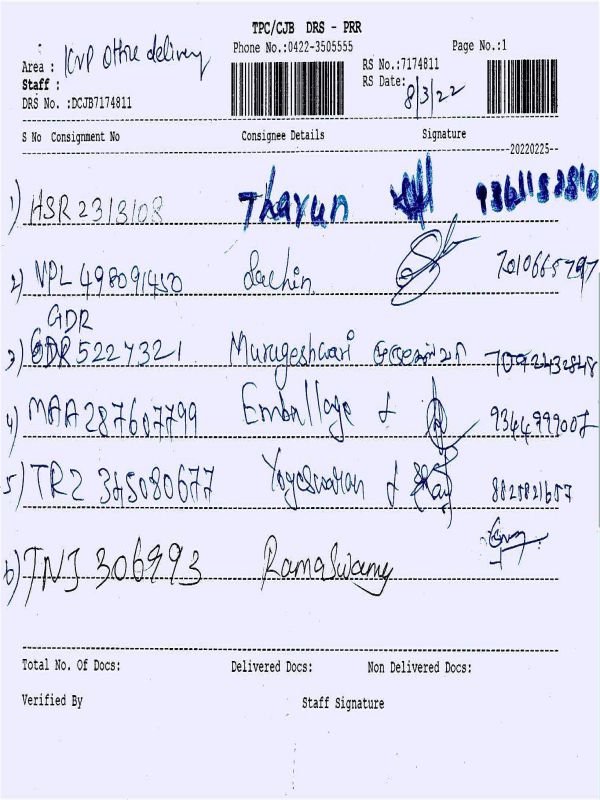 TPC/CJB DRS - PRR
Phone No.:0422-3505555
Page No.:1
Area : KVP Office delivery
RS No.:7174811
Staff :
RS Date: 8/3/22
DRS No. :DCJB7174811
S No Consignment No Consignee Details Signature
20220225
1) HSR 2313108 Tharun 9361152810
2) VPL 498091450 Sachin 7010665797
GDR
3) GDR 5227321 Murugeshwari 7092432848
4) MAA 287607799 Emballage &
5) TRZ 345080677 Yogeswaran & 8825821657
6) TNJ 306993 Ramaswamy
Total No. Of Docs: Delivered Docs: Non Delivered Docs:
Verified By Staff Signature